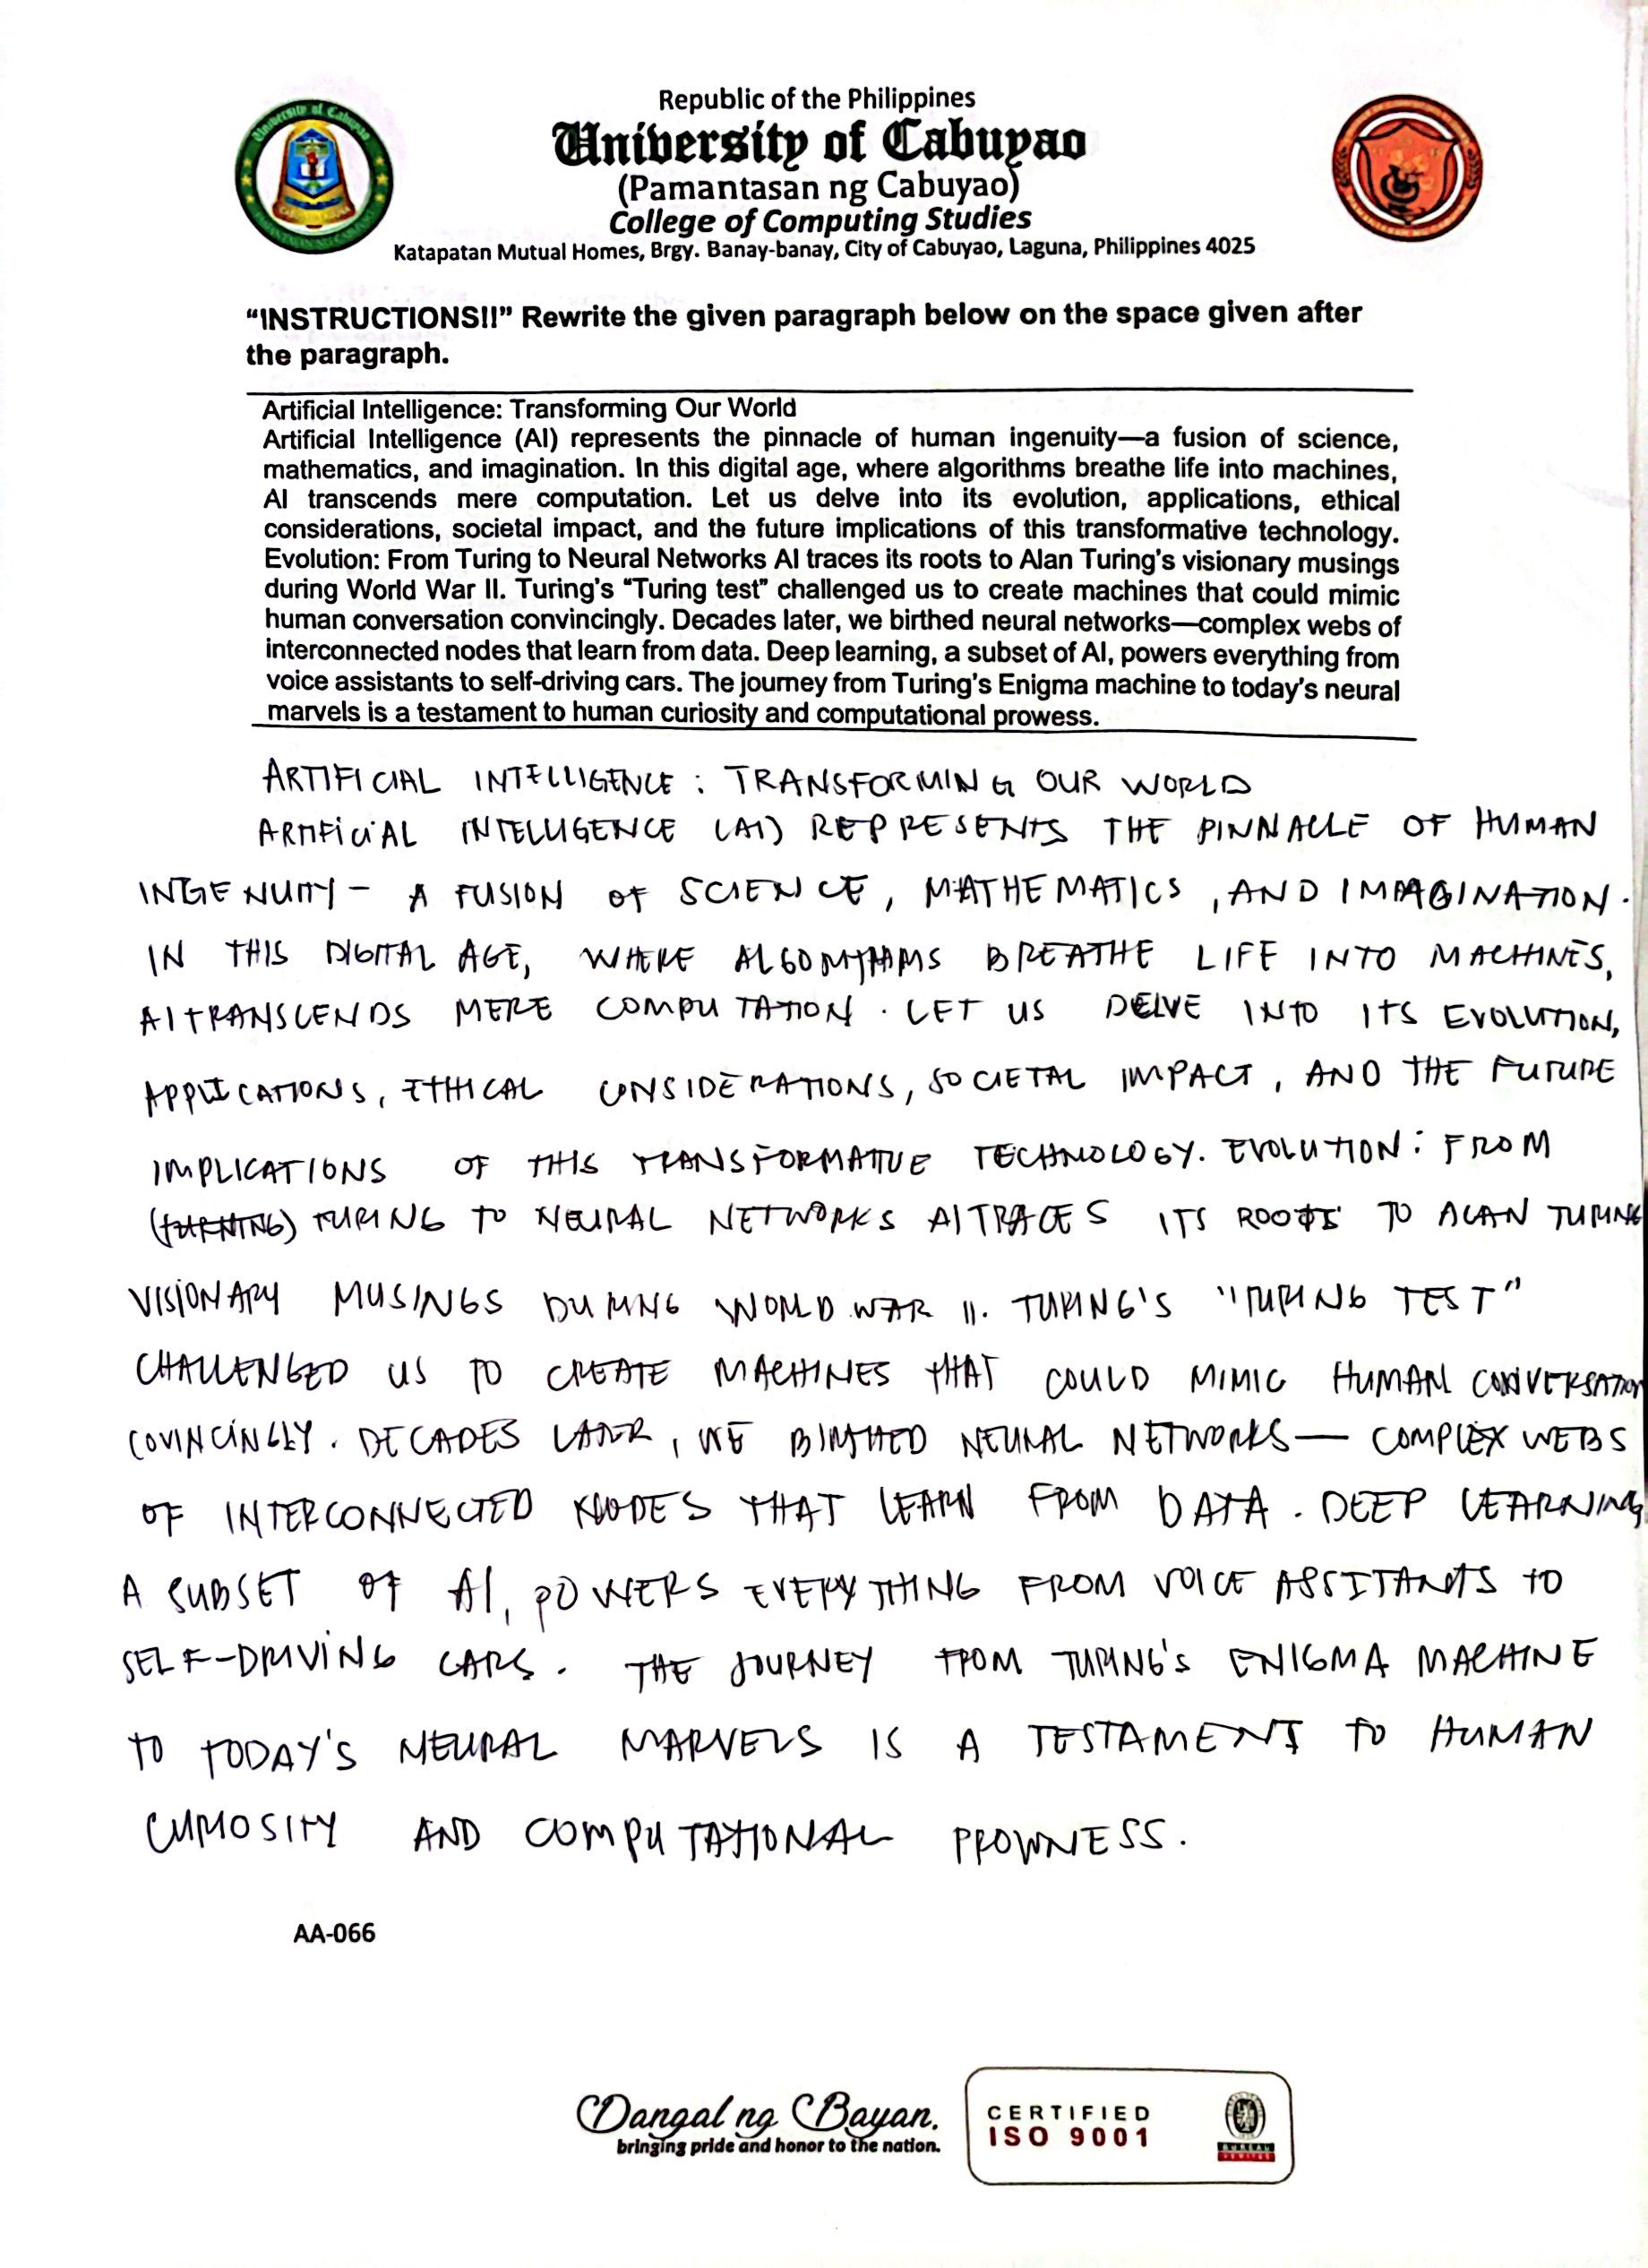 Republic of the Philippines
University of Cabuyao
(Pamantasan ng Cabuyao)
College of Computing Studies
Katapatan Mutual Homes, Brgy. Banay-banay, City of Cabuyao, Laguna, Philippines 4025
“INSTRUCTIONS!!” Rewrite the given paragraph below on the space given after
the paragraph.
Artificial Intelligence: Transforming Our World
Artificial Intelligence (AI) represents the pinnacle of human ingenuity—a fusion of science,
mathematics, and imagination. In this digital age, where algorithms breathe life into machines,
AI transcends mere computation. Let us delve into its evolution, applications, ethical
considerations, societal impact, and the future implications of this transformative technology.
Evolution: From Turing to Neural Networks AI traces its roots to Alan Turing’s visionary musings
during World War II. Turing’s “Turing test” challenged us to create machines that could mimic
human conversation convincingly. Decades later, we birthed neural networks—complex webs of
interconnected nodes that learn from data. Deep learning, a subset of AI, powers everything from
voice assistants to self-driving cars. The journey from Turing’s Enigma machine to today’s neural
marvels is a testament to human curiosity and computational prowess.
ARTIFICIAL INTELLIGENCE : TRANSFORMING OUR WORLD
ARTIFICIAL INTELLIGENCE (AI) REPRESENTS THE PINNACLE OF HUMAN
INGENUITY - A FUSION OF SCIENCE, MATHEMATICS, AND IMAGINATION.
IN THIS DIGITAL AGE, WHERE ALGORITHMS BREATHE LIFE INTO MACHINES,
AI TRANSCENDS MERE COMPUTATION. LET US DELVE INTO ITS EVOLUTION,
APPLICATIONS, ETHICAL CONSIDERATIONS, SOCIETAL IMPACT, AND THE FUTURE
IMPLICATIONS OF THIS TRANSFORMATIVE TECHNOLOGY. EVOLUTION: FROM
(TURNING) TURING TO NEURAL NETWORKS AI TRACES ITS ROOTS TO ALAN TURING
VISIONARY MUSINGS DURING WORLD WAR II. TURING'S "TURING TEST"
CHALLENGED US TO CREATE MACHINES THAT COULD MIMIC HUMAN CONVERSATION
COVINCINGLY. DECADES LATER, WE BIRTHED NEURAL NETWORKS— COMPLEX WEBS
OF INTERCONNECTED NODES THAT LEARN FROM DATA. DEEP LEARNING,
A SUBSET OF AI, POWERS EVERYTHING FROM VOICE ASSITANTS TO
SELF-DRIVING CARS. THE JOURNEY FROM TURING'S ENIGMA MACHINE
TO TODAY'S NEURAL MARVELS IS A TESTAMENT TO HUMAN
CURIOSITY AND COMPUTATIONAL PROWNESS.
AA-066
Dangal ng Bayan.
bringing pride and honor to the nation.
CERTIFIED
ISO 9001
BUREAU
VERITAS